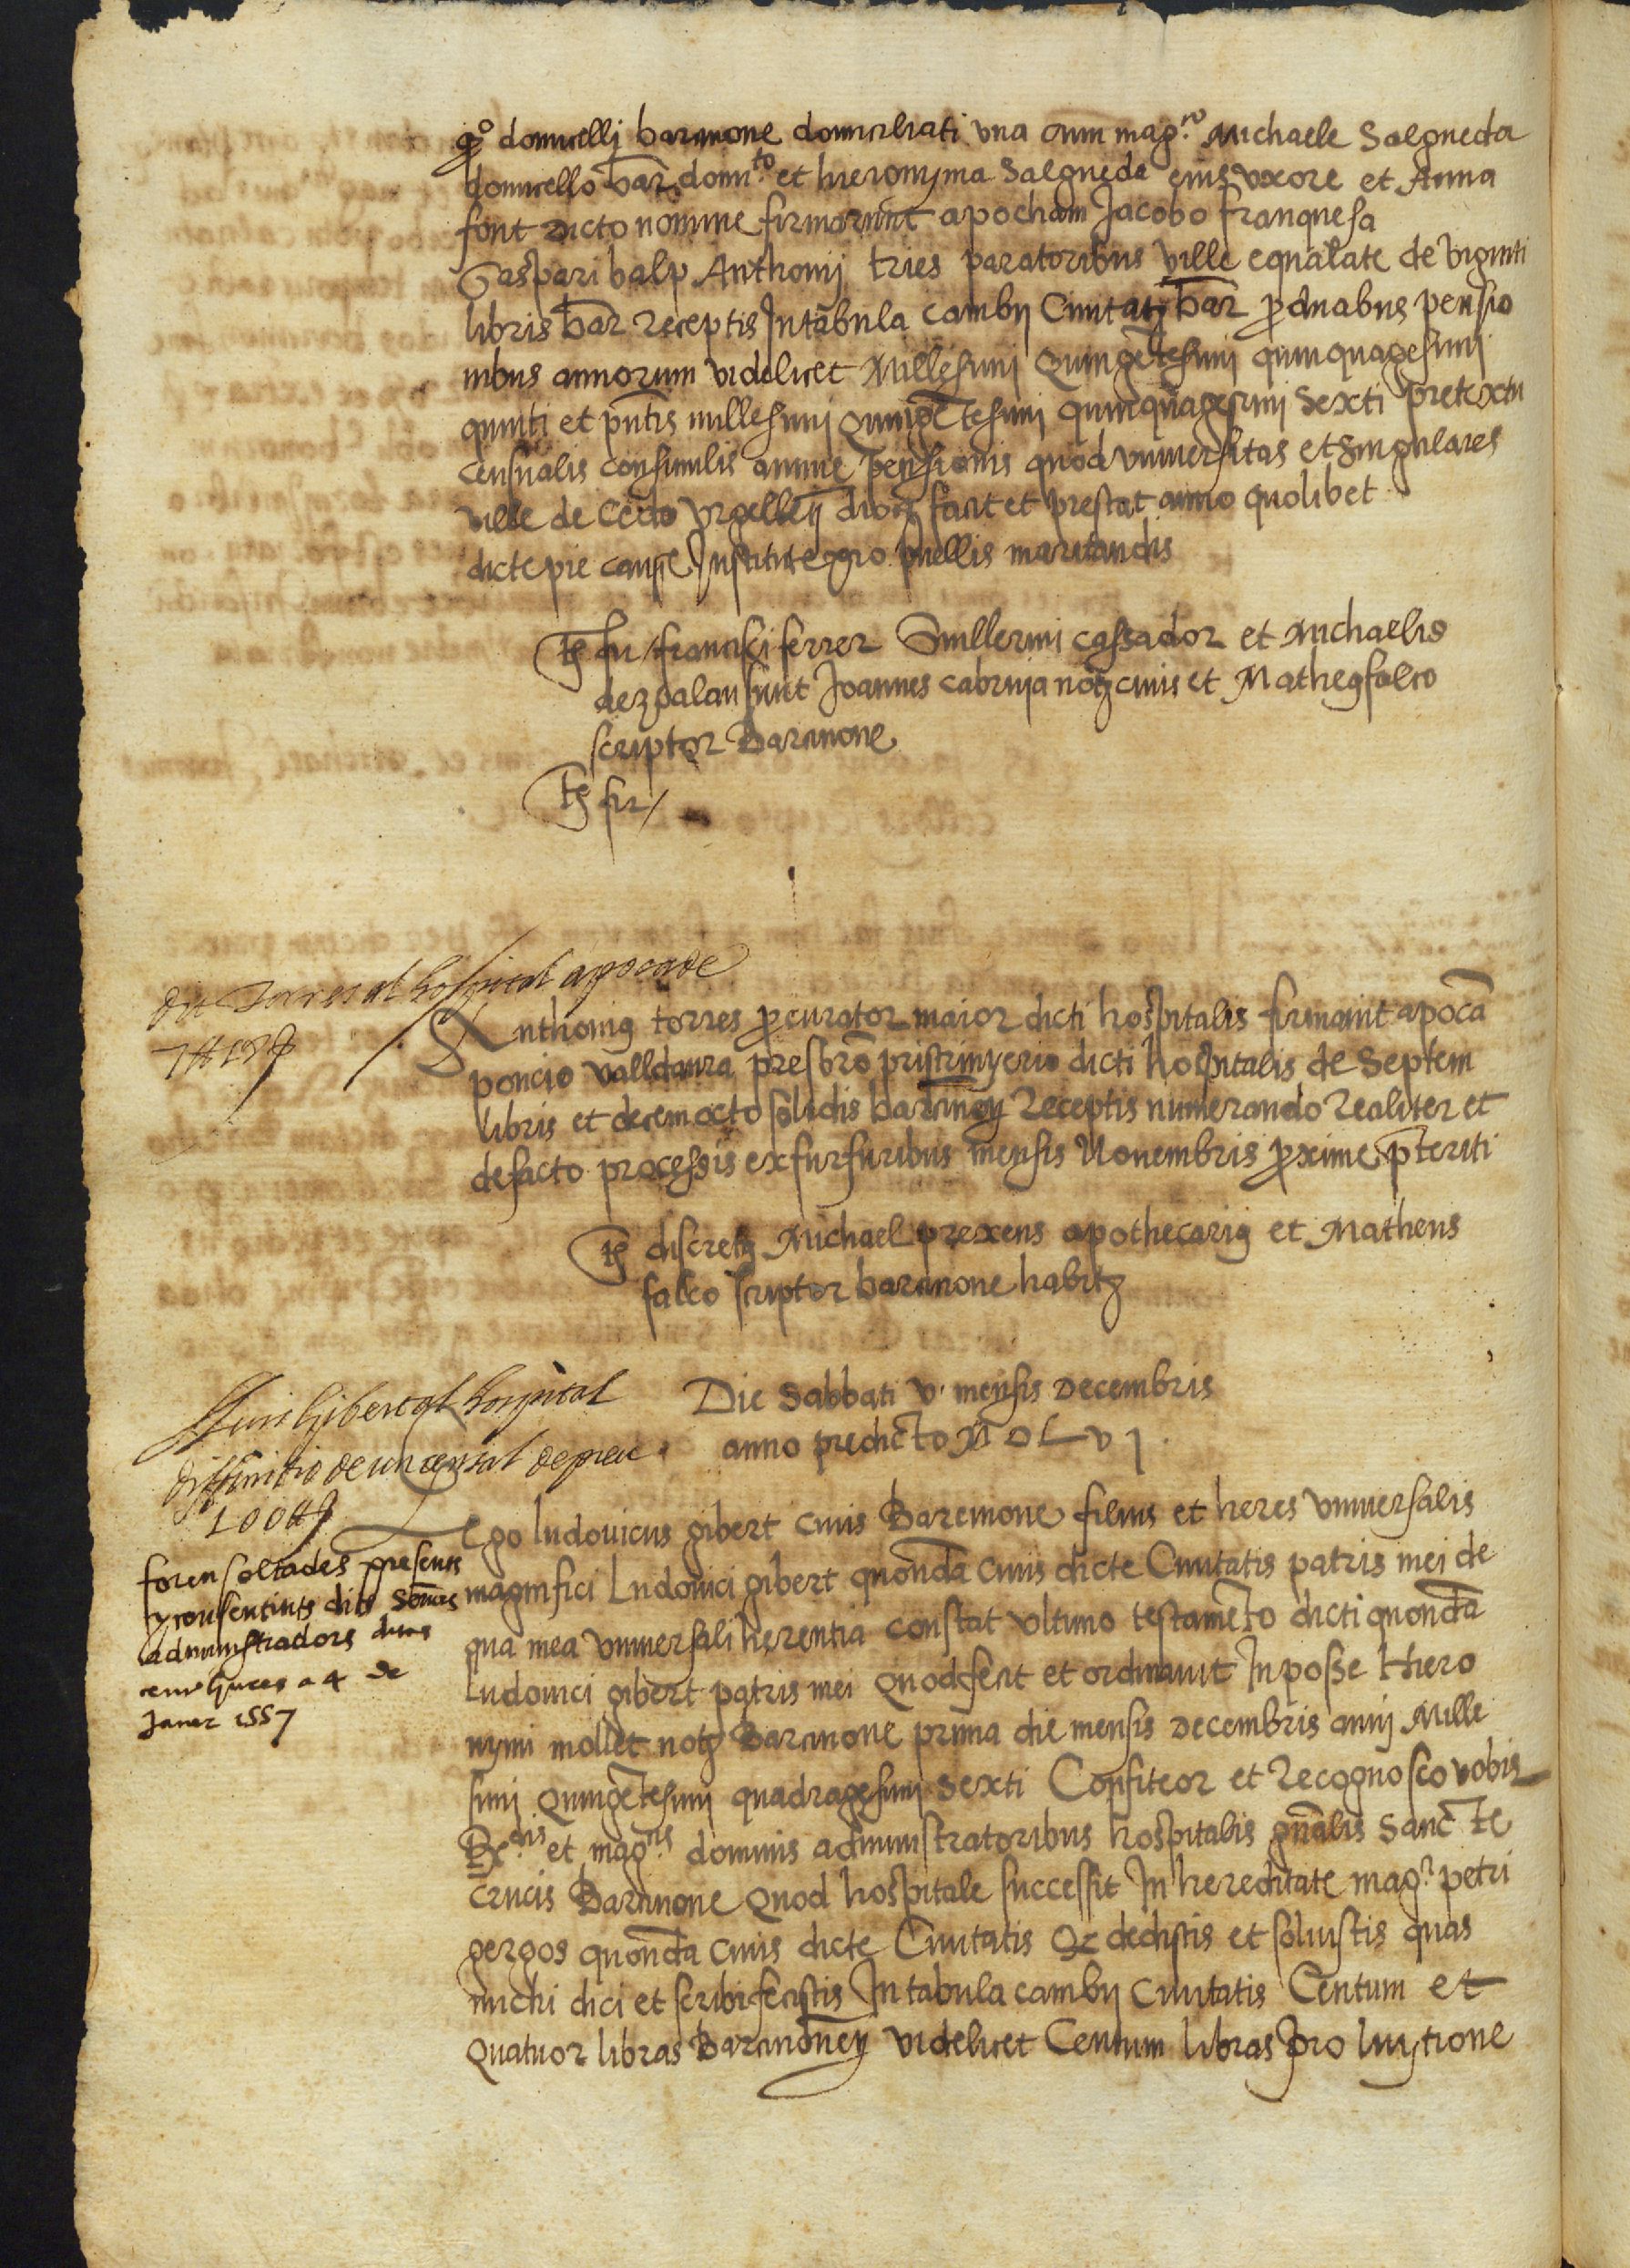 q͞o domicellj barcinone domiciliati vna cum mag.co Michaele Salgueda
domicello bar̄ domi.to et hieronyma Salgueda eius vxore et Anna
font dicto nomine firmarunt apocham Jacobo franquesa
Gaspari balp Anthonij tries paratoribus ville equalate de viginti
libris bar̄ receptis Intabula cambij Ciuitatis bar̄ p duabus pensio
nibus annorum videlicet Millesimj Quingētesimj quinquagesimj
quinti et pn̄tis millesimj quingētesimj quinquagesimj Sexti pretextu
censualis consimilis annue pensionis quod vniuersitas et singulares
ville de Cedo vrgellen̄ dioc facit et prestat anno quolibet
dicte pie cause Institute pro puellis maritandis
t̄s fir / francisci ferrer Guillermi cassador et Michaelis
dezpalau sunt Joannes cabruja not ciuis et Matheus falco
scriptor Barcinone
t̄s fir /
Del Torres al hospital apoca de
7 ₶ 18 ß
Anthonius torres p̄curator maior dicti hospitalis firmauit apocā
poncio valldaura presbr̄o pristrinyerio dicti hospitalis de Septem
libris et decem octo solidis barcinon̄ Receptis numerando realiter et
defacto processis ex furfuribus mensis Nouembris p̄xime p̄teriti
t̄s discretus Michael prexens apothecarius et Matheus
falco scriptor barcinone habit
Lluis Gibert al hospital
diffinitio de un censal de preu
100 ₶
Die Sabbati v mensis Decembris
anno predicto M D L v j
Ego ludouicus gibert ciuis Barcinone filius et heres vniuersalis
magnifici Ludouici gibert quondā ciuis dicte Ciuitatis patris mei de
qua mea vniuersali herentia constat vltimo testamēto dicti quondā
Ludouici gibert patris mei quod fecit et ordinauit Inposse Hiero
nymi mollet not Barcinone prima die mensis Decembris annj Mille
simj Quingētesimj quadragesimj Sexti Confiteor et Recognosco vobis
Rx.dis et mag.cis dominis administratoribus hospitalis gn̄alis Sancte
crucis Barcinone quod hospitale successit In hereditate mag.ci petri
gergos quondā ciuis dicte Ciuitatis Qz dedistis et soluistis quas
michi dici et scribi fecistis In tabula cambij Ciuitatis Centum et
quatuor libras Barcinonen̄ videlicet Centum libras pro luytione
foren soltades presents
y consentints dits Sen̄ors
administradors
a 4 de
Janer 1557